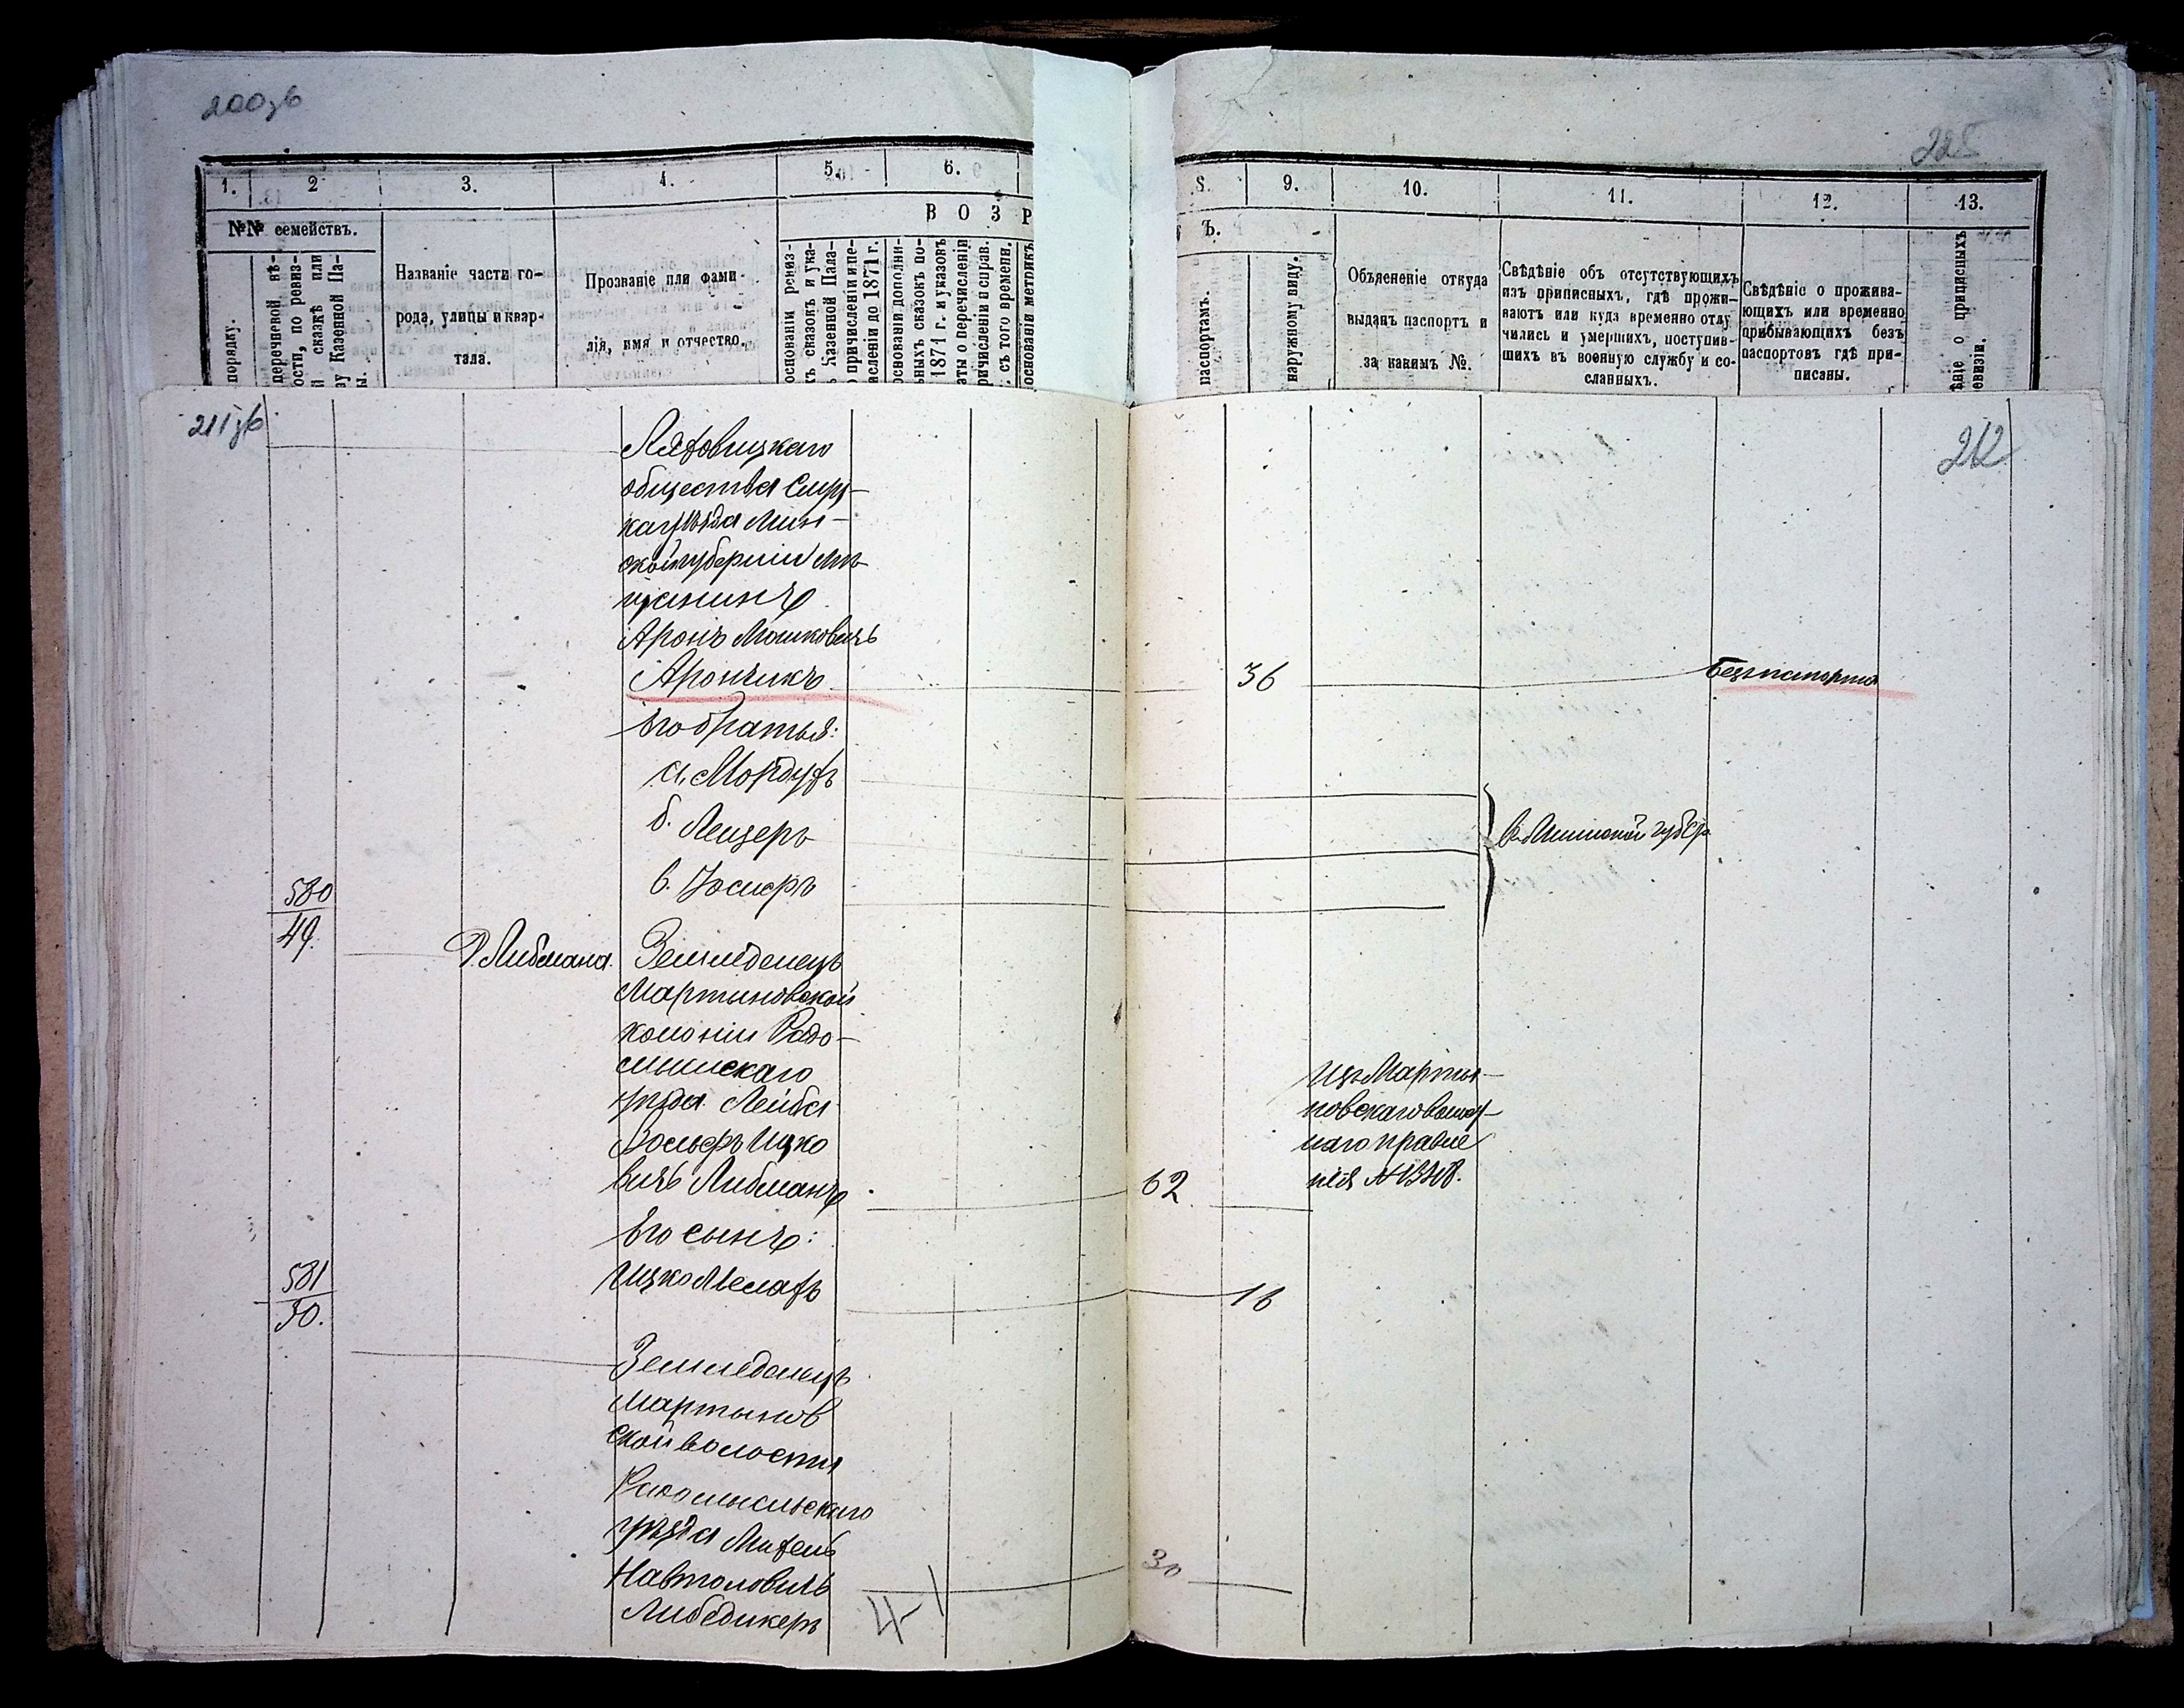 200зв
225
1. 2 3. 4. 5. 6.
8. 9. 10. 11. 12. 13.
№№ семействъ.
В О З Р
Ъ.
порядку.
перечневой вѣ-
ости, по ревиз-
й сказкѣ или
зу Казенной Па-
ы.
Названіе части го-
рода, улицы и квар-
тала.
Прозваніе или фами-
лія, имя и отчество.
основаніи ревиз-
хъ сказокъ и ука-
ъ Казенной Пала-
о причисленіи и пе-
исленіи до 1871 г.
основаніи дополни-
ьныхъ сказокъ по-
1871 г. и указовъ
аты о перечисленіи
ричисленіи и справ.
съ того времени.
основаніи метрикъ
паспортамъ.
наружному виду.
Объясненіе откуда
выданъ паспортъ и
за какимъ №.
Свѣдѣніе объ отсутствующихъ
изъ приписныхъ, гдѣ прожи-
ваютъ или куда временно отлу
чились и умершихъ, поступив-
шихъ въ военную службу и со-
сланныхъ.
Свѣдѣніе о прожива-
ющихъ или временно
прибывающихъ безъ
паспортовъ гдѣ при-
писаны.
ѣніе о приписныхъ
евизіи.
211зв
212
Ляховицкаго
общества Слуц-
каго уѣзда Мин-
ской губерніи мѣ-
щанинъ
Аронъ Мошковичъ
Арончикъ
36
Безъ паспорта
Его братья:
а. Мордухъ
б. Лейзеръ
в. Іосифъ
въ Минской губер.
580
49.
Д. Либмана.
Земледелецъ
Мартыновской
колоніи Радо-
мысльскаго
уѣзда Лейба
Вольфъ Ицко
вичъ Либманъ
62
Изъ Марты-
новскаго волост-
наго правле
нія №
Его сынъ:
Ицко Мелахъ
16
581
50.
Земледелецъ
Мартынов
ской волости
Радомысльскаго
уѣзда Михель
Навтоловичъ
Либедикеръ
30
4-1